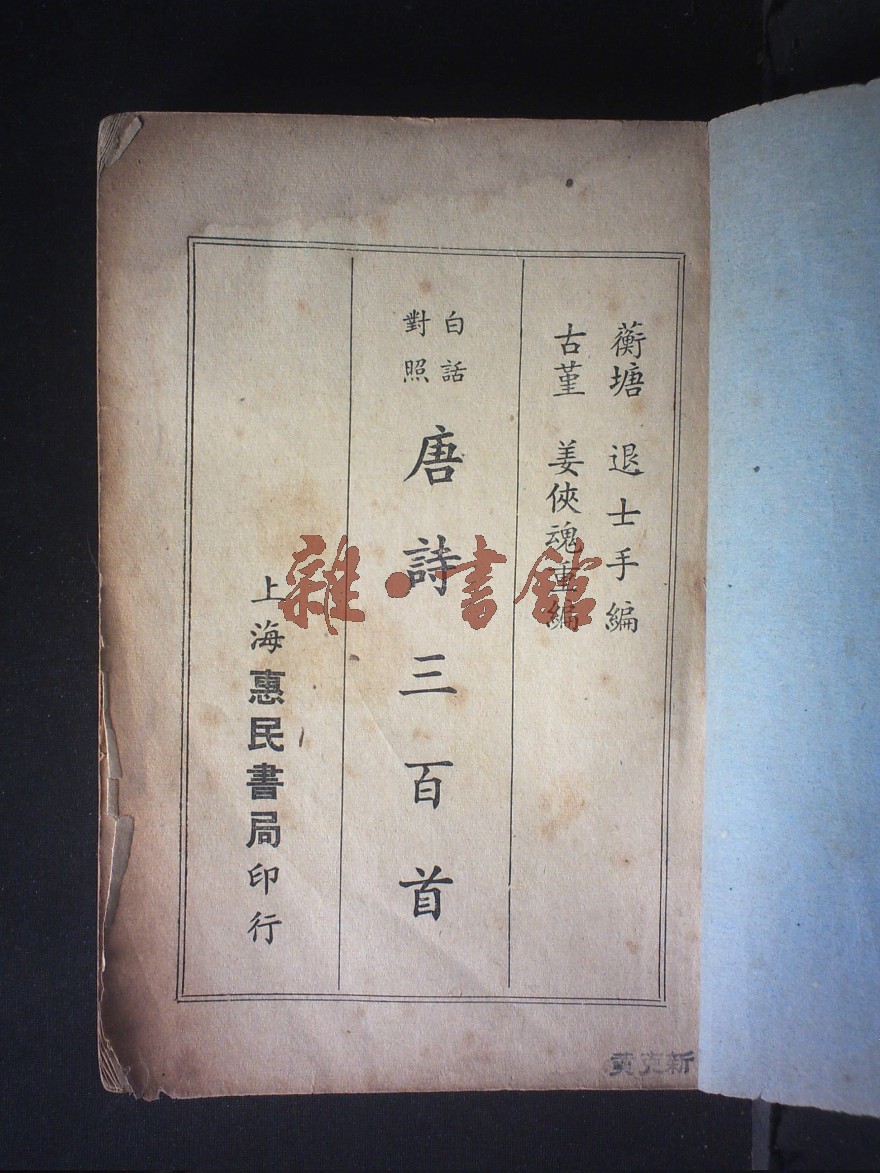 蘅塘 退士手編
古堇 姜俠魂重編
白話
對照
唐詩三百首
上海惠民書局印行
雜·書館
黃克新